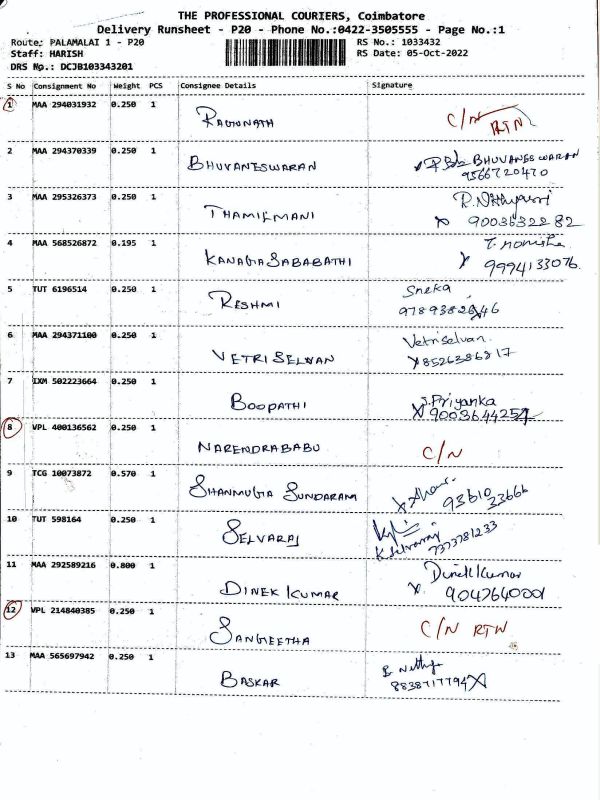 THE PROFESSIONAL COURIERS, Coimbatore
Delivery Runsheet - P20 - Phone No.:0422-3505555 - Page No.:1
Route: PALAMALAI 1 - P20 RS No.: 1033432
Staff: HARISH RS Date: 05-Oct-2022
DRS No.: DCJB103343201
S No Consignment No Weight PCS Consignee Details Signature
1 MAA 294031932 0.250 1 RAGUNATH C/N RTN
2 MAA 294370339 0.250 1 BHUVANESWARAN BHUVANESWARAN
9566720470
3 MAA 295326373 0.250 1 THAMILMANI
9003632282
4 MAA 568526872 0.195 1 KANAGASABABATHI T. Monisha
9994133076
5 TUT 6196514 0.250 1 RESHMI Sneka
6 MAA 294371100 0.250 1 VETRISELVAN Vetriselvan
8526386817
7 IXM 502223664 0.250 1 BOOPATHI J.Priyanka
8 VPL 400136562 0.250 1 NARENDRABABU C/N
9 TCG 10073872 0.570 1 SHANMUGA SUNDARAM
93610 33666
10 TUT 598164 0.250 1 SELVARAJ
K.Selvaraj 7373781233
11 MAA 292589216 0.800 1 DINEK KUMAR Dinek Kumar
9047640001
12 VPL 214840385 0.250 1 SANGEETHA C/N RTN
13 MAA 565697942 0.250 1 BASKAR
8838717794